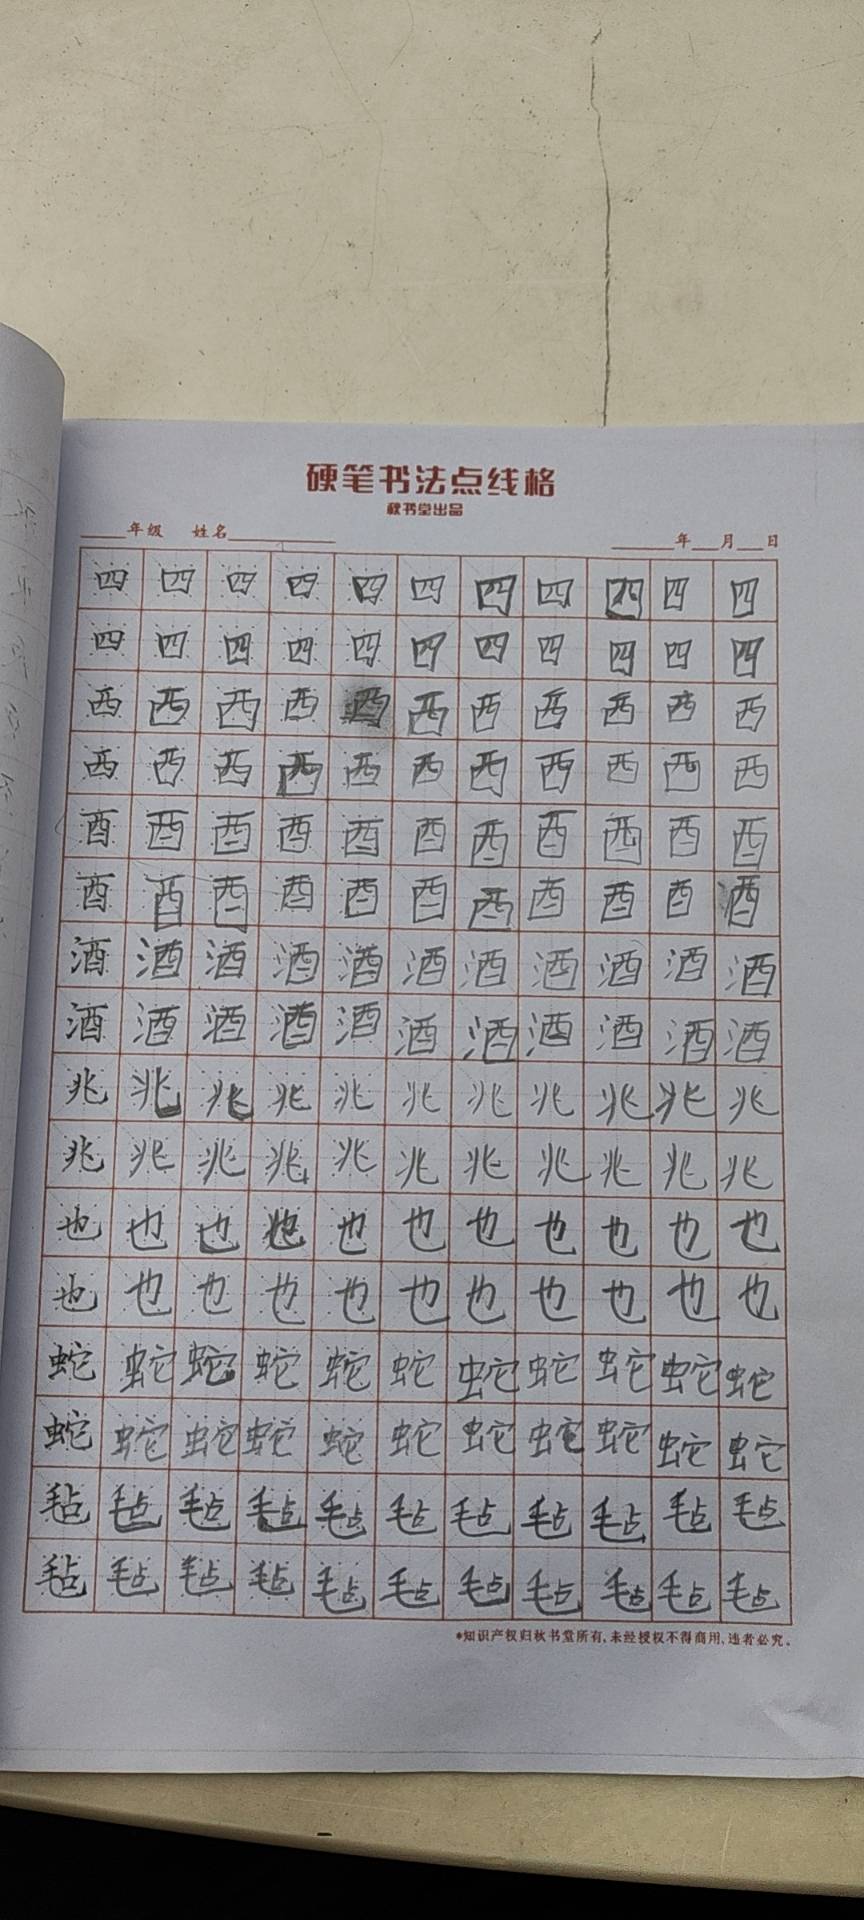 硬笔书法点线格
秋书堂出品
年级 姓名 年 月 日
四四四四四四四四四四四
四四四四四四四四四四四
西西西西西西西西西西西
西西西西西西西西西西西
酉酉酉酉酉酉酉酉酉酉酉
酉酉酉酉酉酉酉酉酉酉酉
酒酒酒酒酒酒酒酒酒酒酒
酒酒酒酒酒酒酒酒酒酒酒
兆兆兆兆兆兆兆兆兆兆兆
兆兆兆兆兆兆兆兆兆兆兆
也也也也也也也也也也也
也也也也也也也也也也也
蛇蛇蛇蛇蛇蛇蛇蛇蛇蛇蛇
蛇蛇蛇蛇蛇蛇蛇蛇蛇蛇蛇
毡毡毡毡毡毡毡毡毡毡毡
毡毡毡毡毡毡毡毡毡毡毡
*知识产权归秋书堂所有,未经授权不得商用,违者必究。